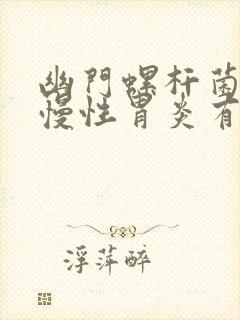 幽門螺杆菌
慢性胃炎有
浮萍醉